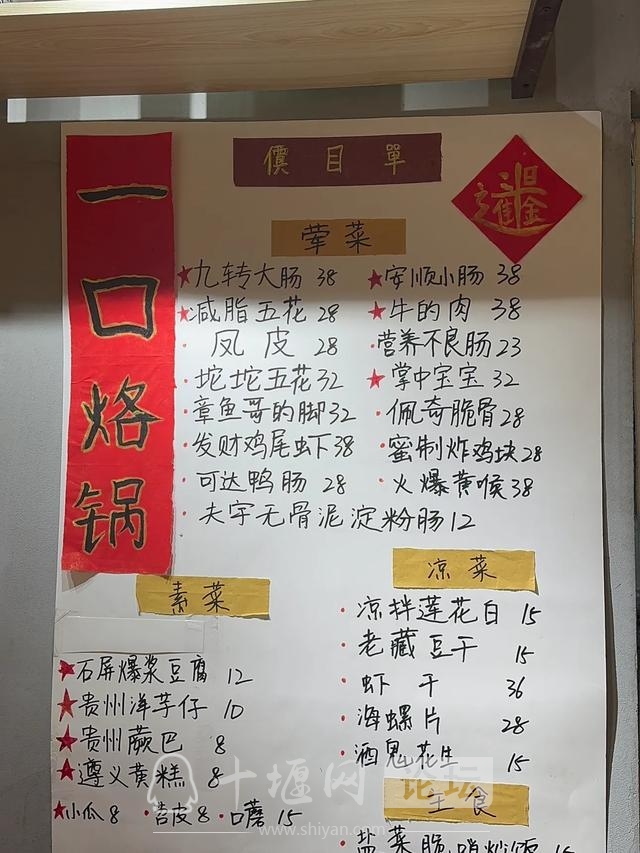 價目單
一口烙锅
荤菜
九转大肠 38
安顺小肠 38
减脂五花 28
牛的肉 38
凤皮 28
营养不良肠 23
坨坨五花 32
掌中宝宝 32
章鱼哥的脚 32
佩奇脆骨 28
发财鸡尾虾 38
蜜制炸鸡块 28
可达鸭肠 28
火爆黄喉 38
夫宇无骨泥淀粉肠 12
素菜
石屏爆浆豆腐 12
贵州洋芋仔 10
贵州蕨巴 8
遵义黄糕 8
小瓜 8 苕皮 8 口蘑 15
凉菜
凉拌莲花白 15
老藏豆干 15
虾干 36
海螺片 28
酒鬼花生 15
主食
十堰网 论坛
www.shiyan.com